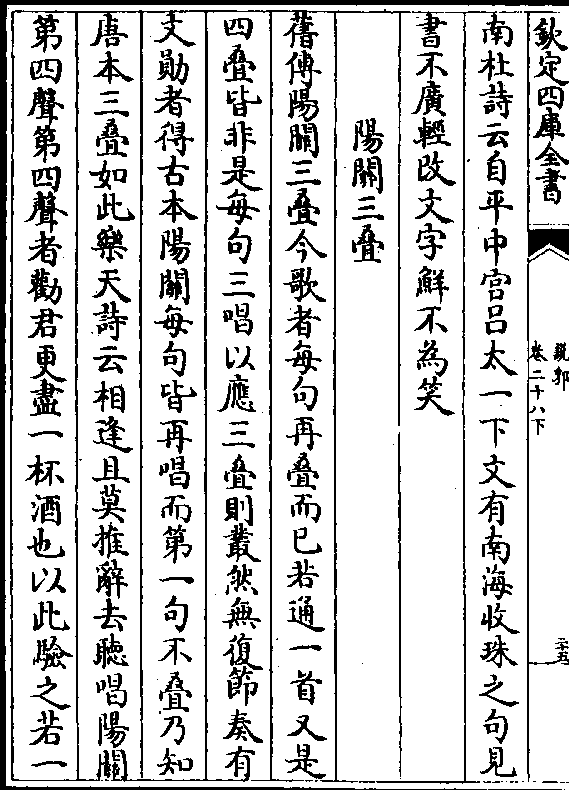 欽定四庫全書
說郛
卷二十八下
二十五
南杜詩云自平中宮吕太一下文有南海收珠之句見
書不廣輕改文字鮮不為笑
陽關三疊
舊傳陽關三疊今歌者每句再疊而已若通一首又是
四疊皆非是每句三唱以應三疊則叢然無復節奏有
文勛者得古本陽關每句皆再唱而第一句不疊乃知
唐本三疊如此樂天詩云相逢且莫推辭去聽唱陽關
第四聲第四聲者勸君更盡一杯酒也以此驗之若一